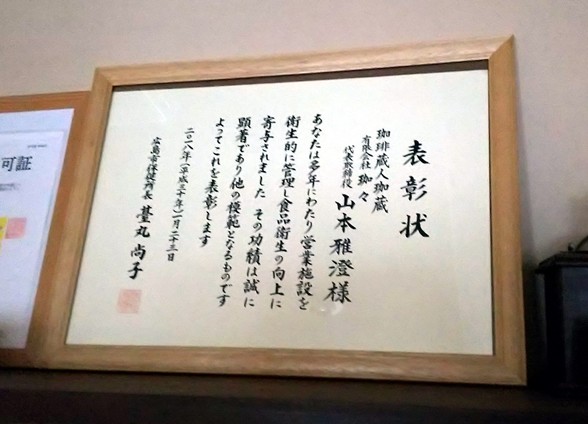 表彰状
珈琲蔵人珈蔵
有限会社 珈々
代表取締役 山本雅澄様
あなたは多年にわたり営業施設を
衛生的に管理し食品衛生の向上に
寄与されました その功績は誠に
顕著であり他の模範となるものです
よってこれを表彰します
二〇一八年(平成三十年)一月二十三日
広島市保健所長 臺丸 尚子
可証